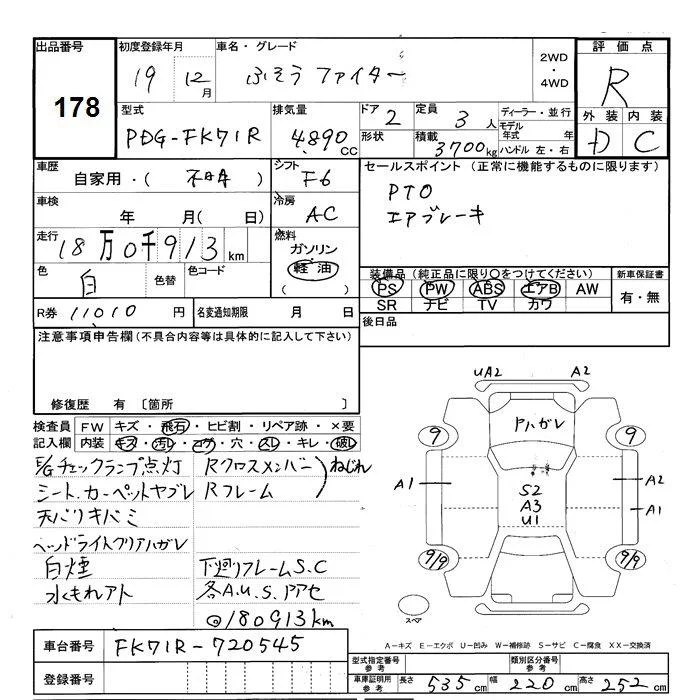 出品番号 初度登録年月 車名・グレード 2WD・4WD 評価点
178 19 12月 ふそう ファイター R
型式 排気量 ドア 2 定員 3人 ディーラー・並行 外装 内装
PDG-FK71R 4.890cc 形状 積載 3700kg モデル年式 年 ハンドル 左・右 D C
車歴 自家用・( ) シフト F6 セールスポイント(正常に機能するものに限ります)
車検 年 月( 日) 冷房 AC PTO
エアブレーキ
走行 18万0千913km 燃料 ガソリン
軽油
( )
色 白 色替 色コード 装備品(純正品に限り○をつけてください) 新車保証書
PS PW ABS エアB AW 有・無
SR ナビ TV カワ
R券 11010円 名変通知期限 月 日 後日品
注意事項申告欄(不具合内容等は具体的に記入して下さい)
修復歴 有 〔箇所 〕
検査員 FW キズ・飛石・ヒビ割・リペア跡・×要
記入欄 内装 キズ・汚レ・コゲ・穴・スレ・キレ・破レ
E/Gチェックランプ点灯 Rクロスメンバー
シート.カーペットヤブレ Rフレーム ねじれ
天バリキバミ
ヘッドライトクリアハガレ
白煙 下廻りフレームS.C
水もれアト 各A.U.S.ドアセ
@180913km
UA2 A2
Pハガレ
9 9
A1 S2 A2
A3 A1
U1
9/9 9/9
スペア
A−キズ E−エクボ U−凹み W−補修跡 S−サビ C−腐食 XX−交換済
車台番号 FK71R-720545
登録番号
型式指定番号 参考 類別区分番号 参考
車庫証明用 参考 長さ 535cm 幅 220cm 高さ 252cm